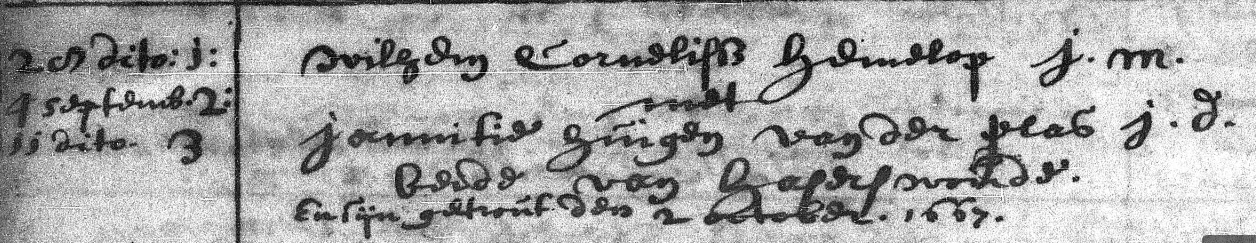 28 dito: 1:
4 septemb. 2:
11 dito. 3
Willem Cornelisß Hemelop j. m.
met
Jannitie Huigen van der plas j. d.
beide van Haserswoude.
En sijn getrout den 2 october. 1667.